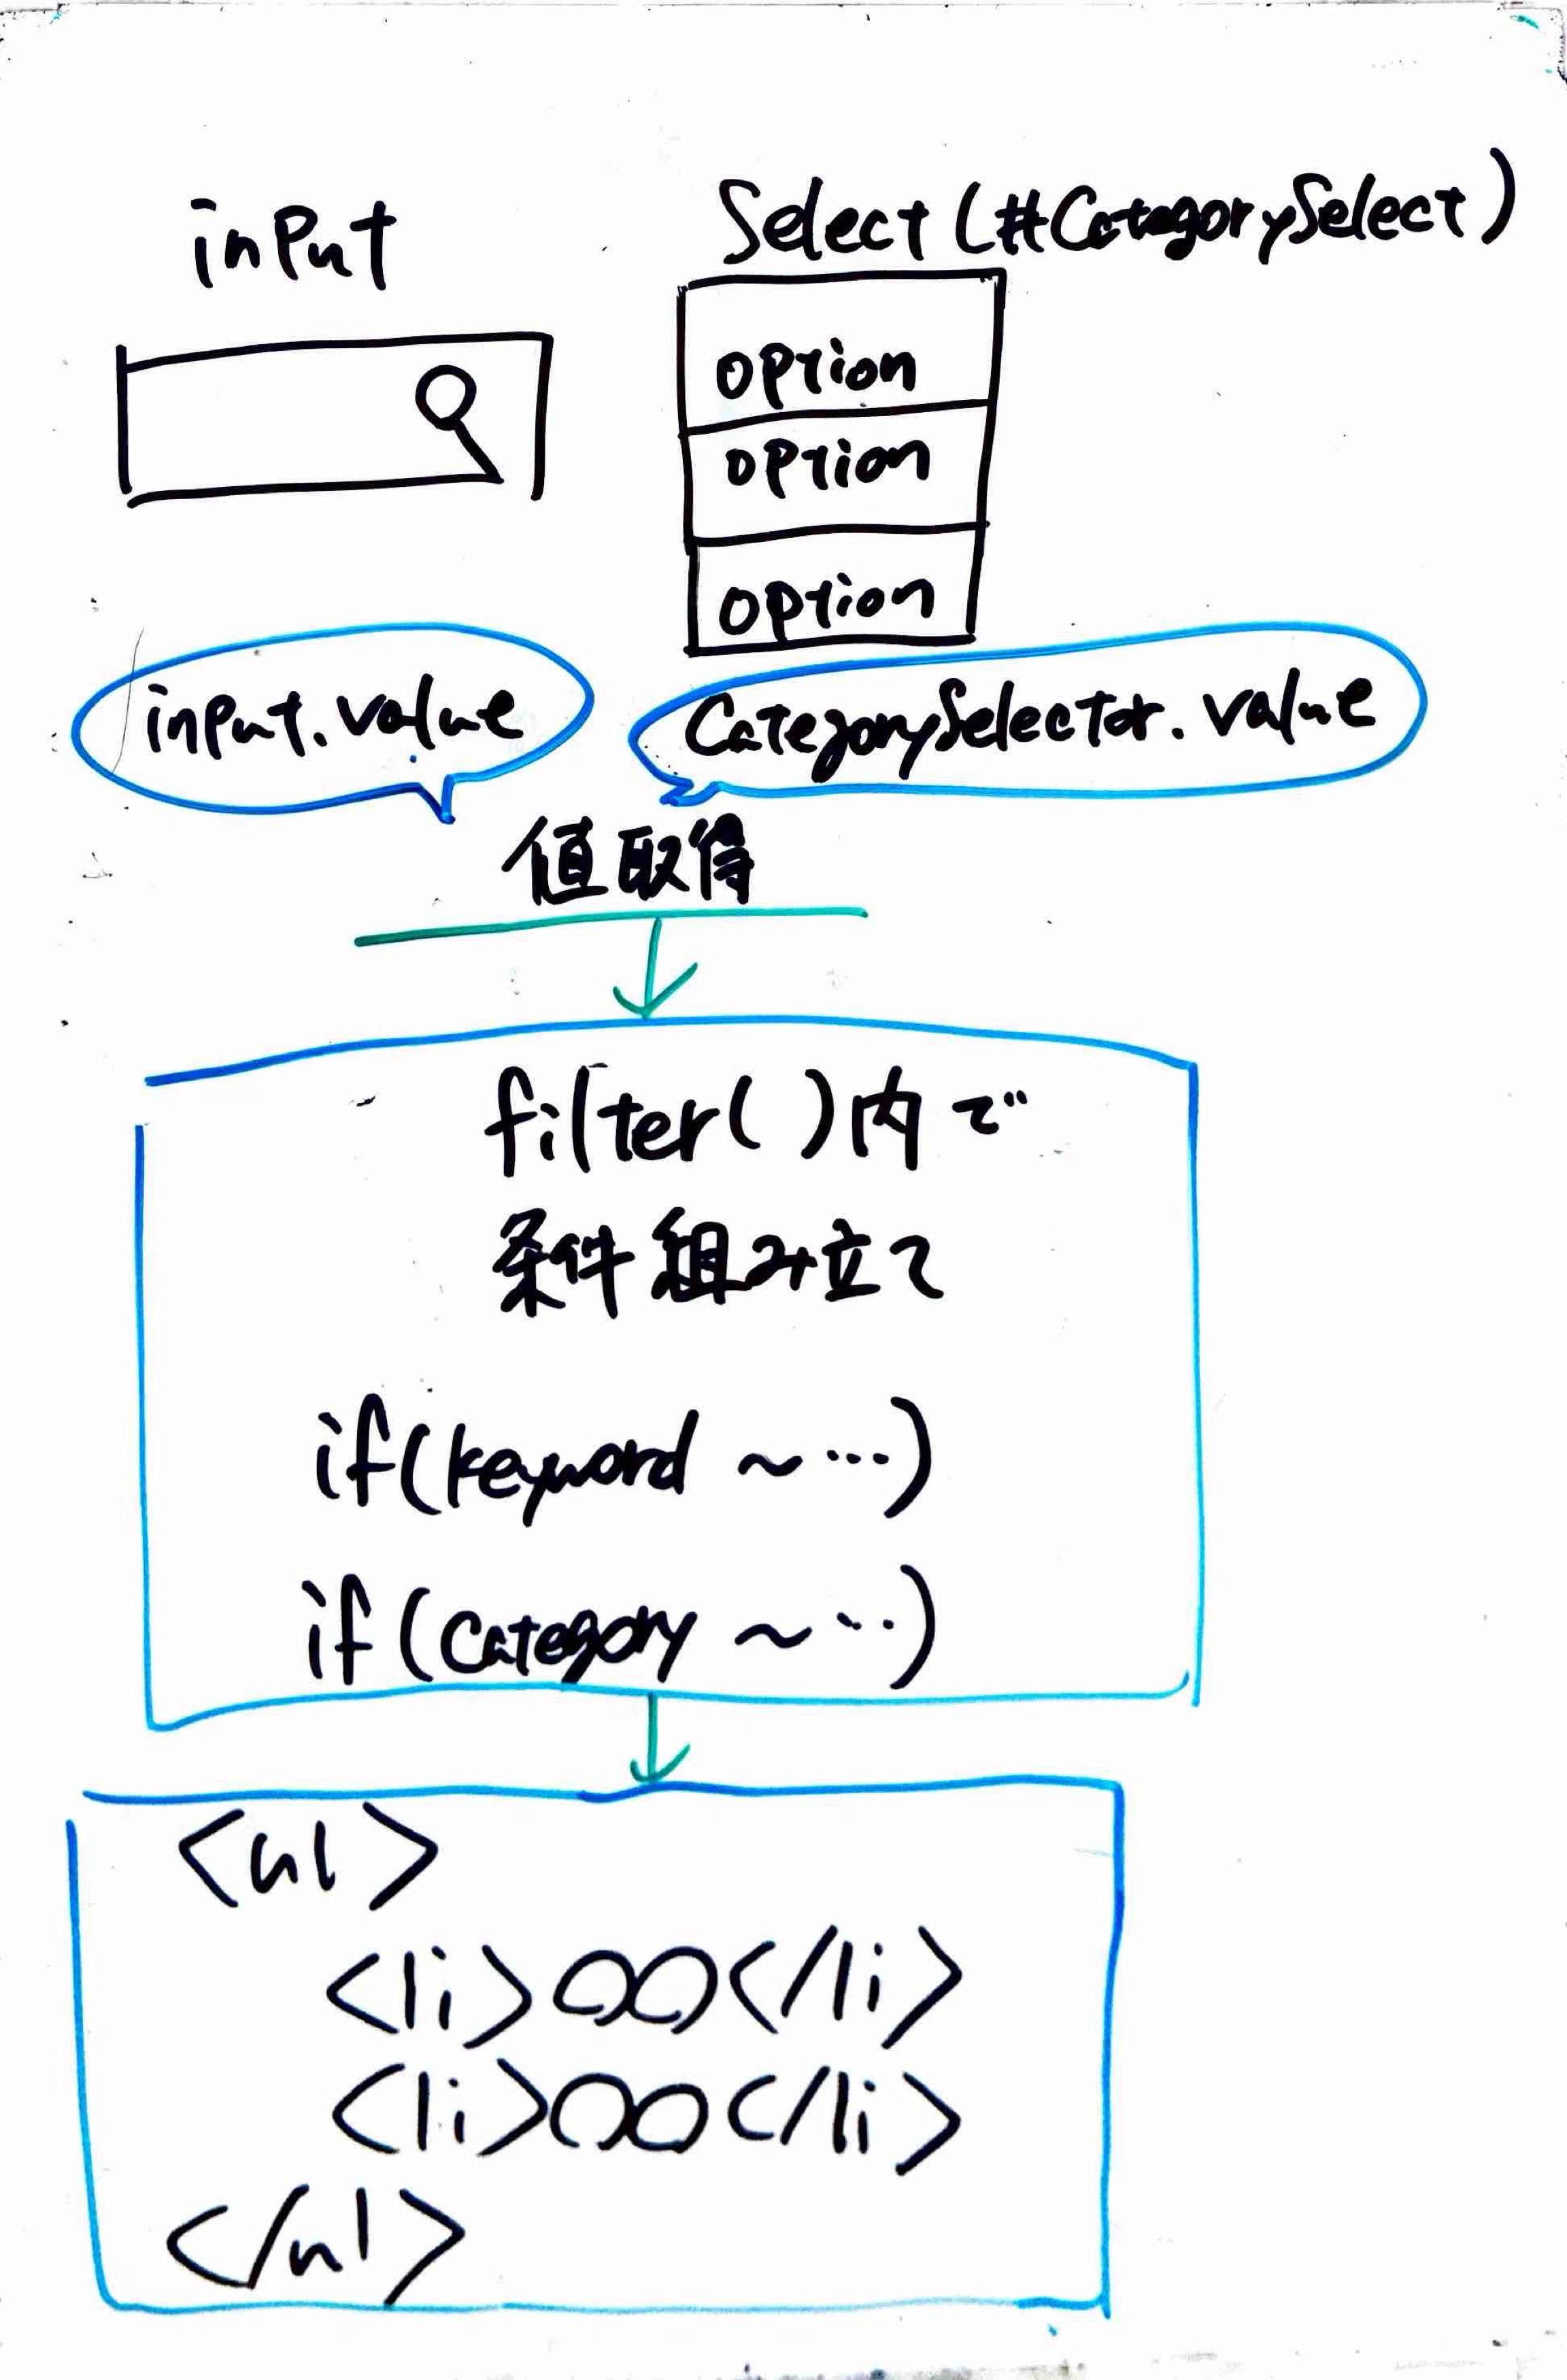 input
Select(#CategorySelect)
option
option
option
input.value
CategorySelector.value
値取得
filter()内で
条件組み立て
if(keyword ～…)
if(Category ～…)
<ul>
<li>〇〇</li>
<li>〇〇</li>
</ul>